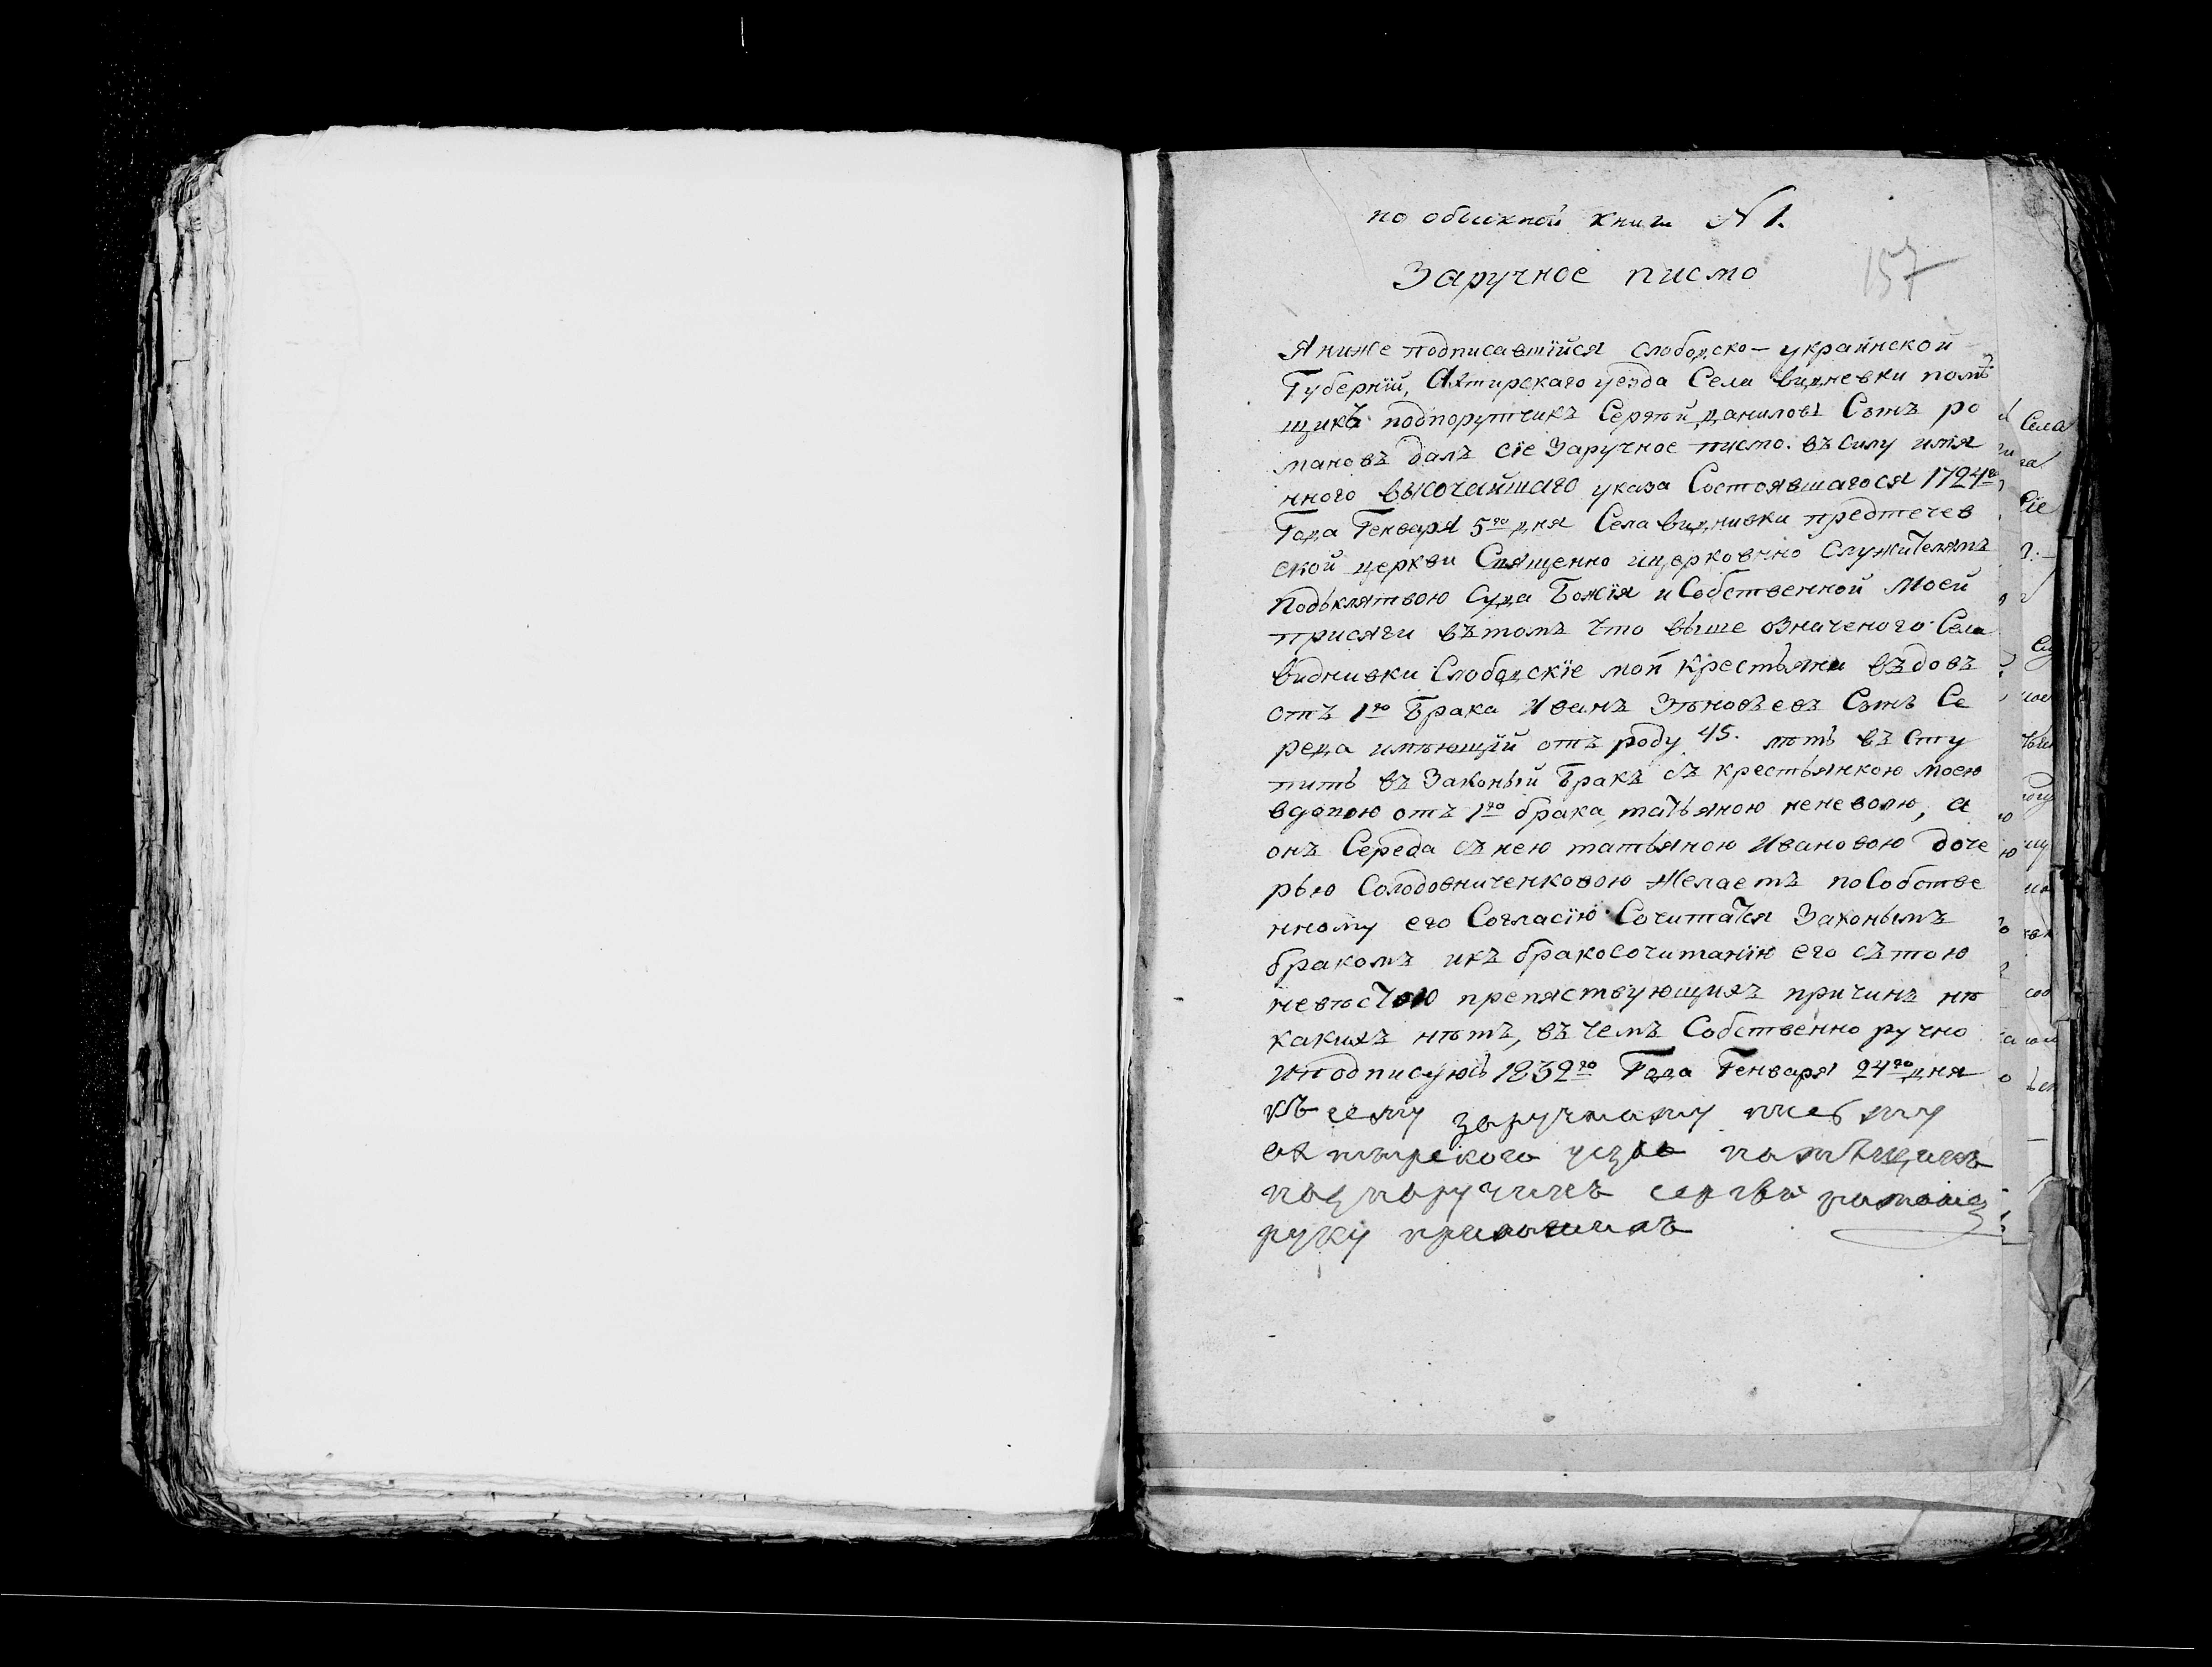 по обыкной книги № 1.
157
Заручное писмо
Я ниже подписавшійся слободско-украинской
Губерніи, Ахтирскаго уезда Села Видневки помѣ
щикъ подпорутчикъ Сергѣй Даниловъ Сынъ ро
мановъ далъ сіе Заручное писмо. въ силу имя
нного высочайшаго указа Состоявшагося 1724го
Года Генваря 5го дня Села Видниевки предтечев
ской церкви Священно ицерковно Служителямъ
подъклятвою Суда Божія и Собственной моей
присяги вътомъ что выше означеного Села
Видниевки Слободскіе мои крестьяни въдовъ
отъ 1го Брака Иванъ Зѣновьевъ Сынъ Се
реда имѣющій отъ роду 45. лѣтъ въ Сту
пить въ Законый Бракъ съ крестьянкою моею
вдовою отъ 1го брака, татьяною неневолю, а
онъ Середа съ нею татьяною Ивановою доче
рью Солодовниченковою желаетъ поСобстве
нному его Согласію Сочитатся Законымъ
бракомъ икъ бракосочитанію его сътою
невѣстою препяствующихъ причинъ нѣ
какихъ нѣтъ, въ чемъ Собственно ручно
иподписуюсь 1832го Года Генваря 24го дня
къ сему заручному писму
ахтырского уезда помѣщикъ
подпоручикъ сергѣй романов
руку приложилъ
Села
сіе